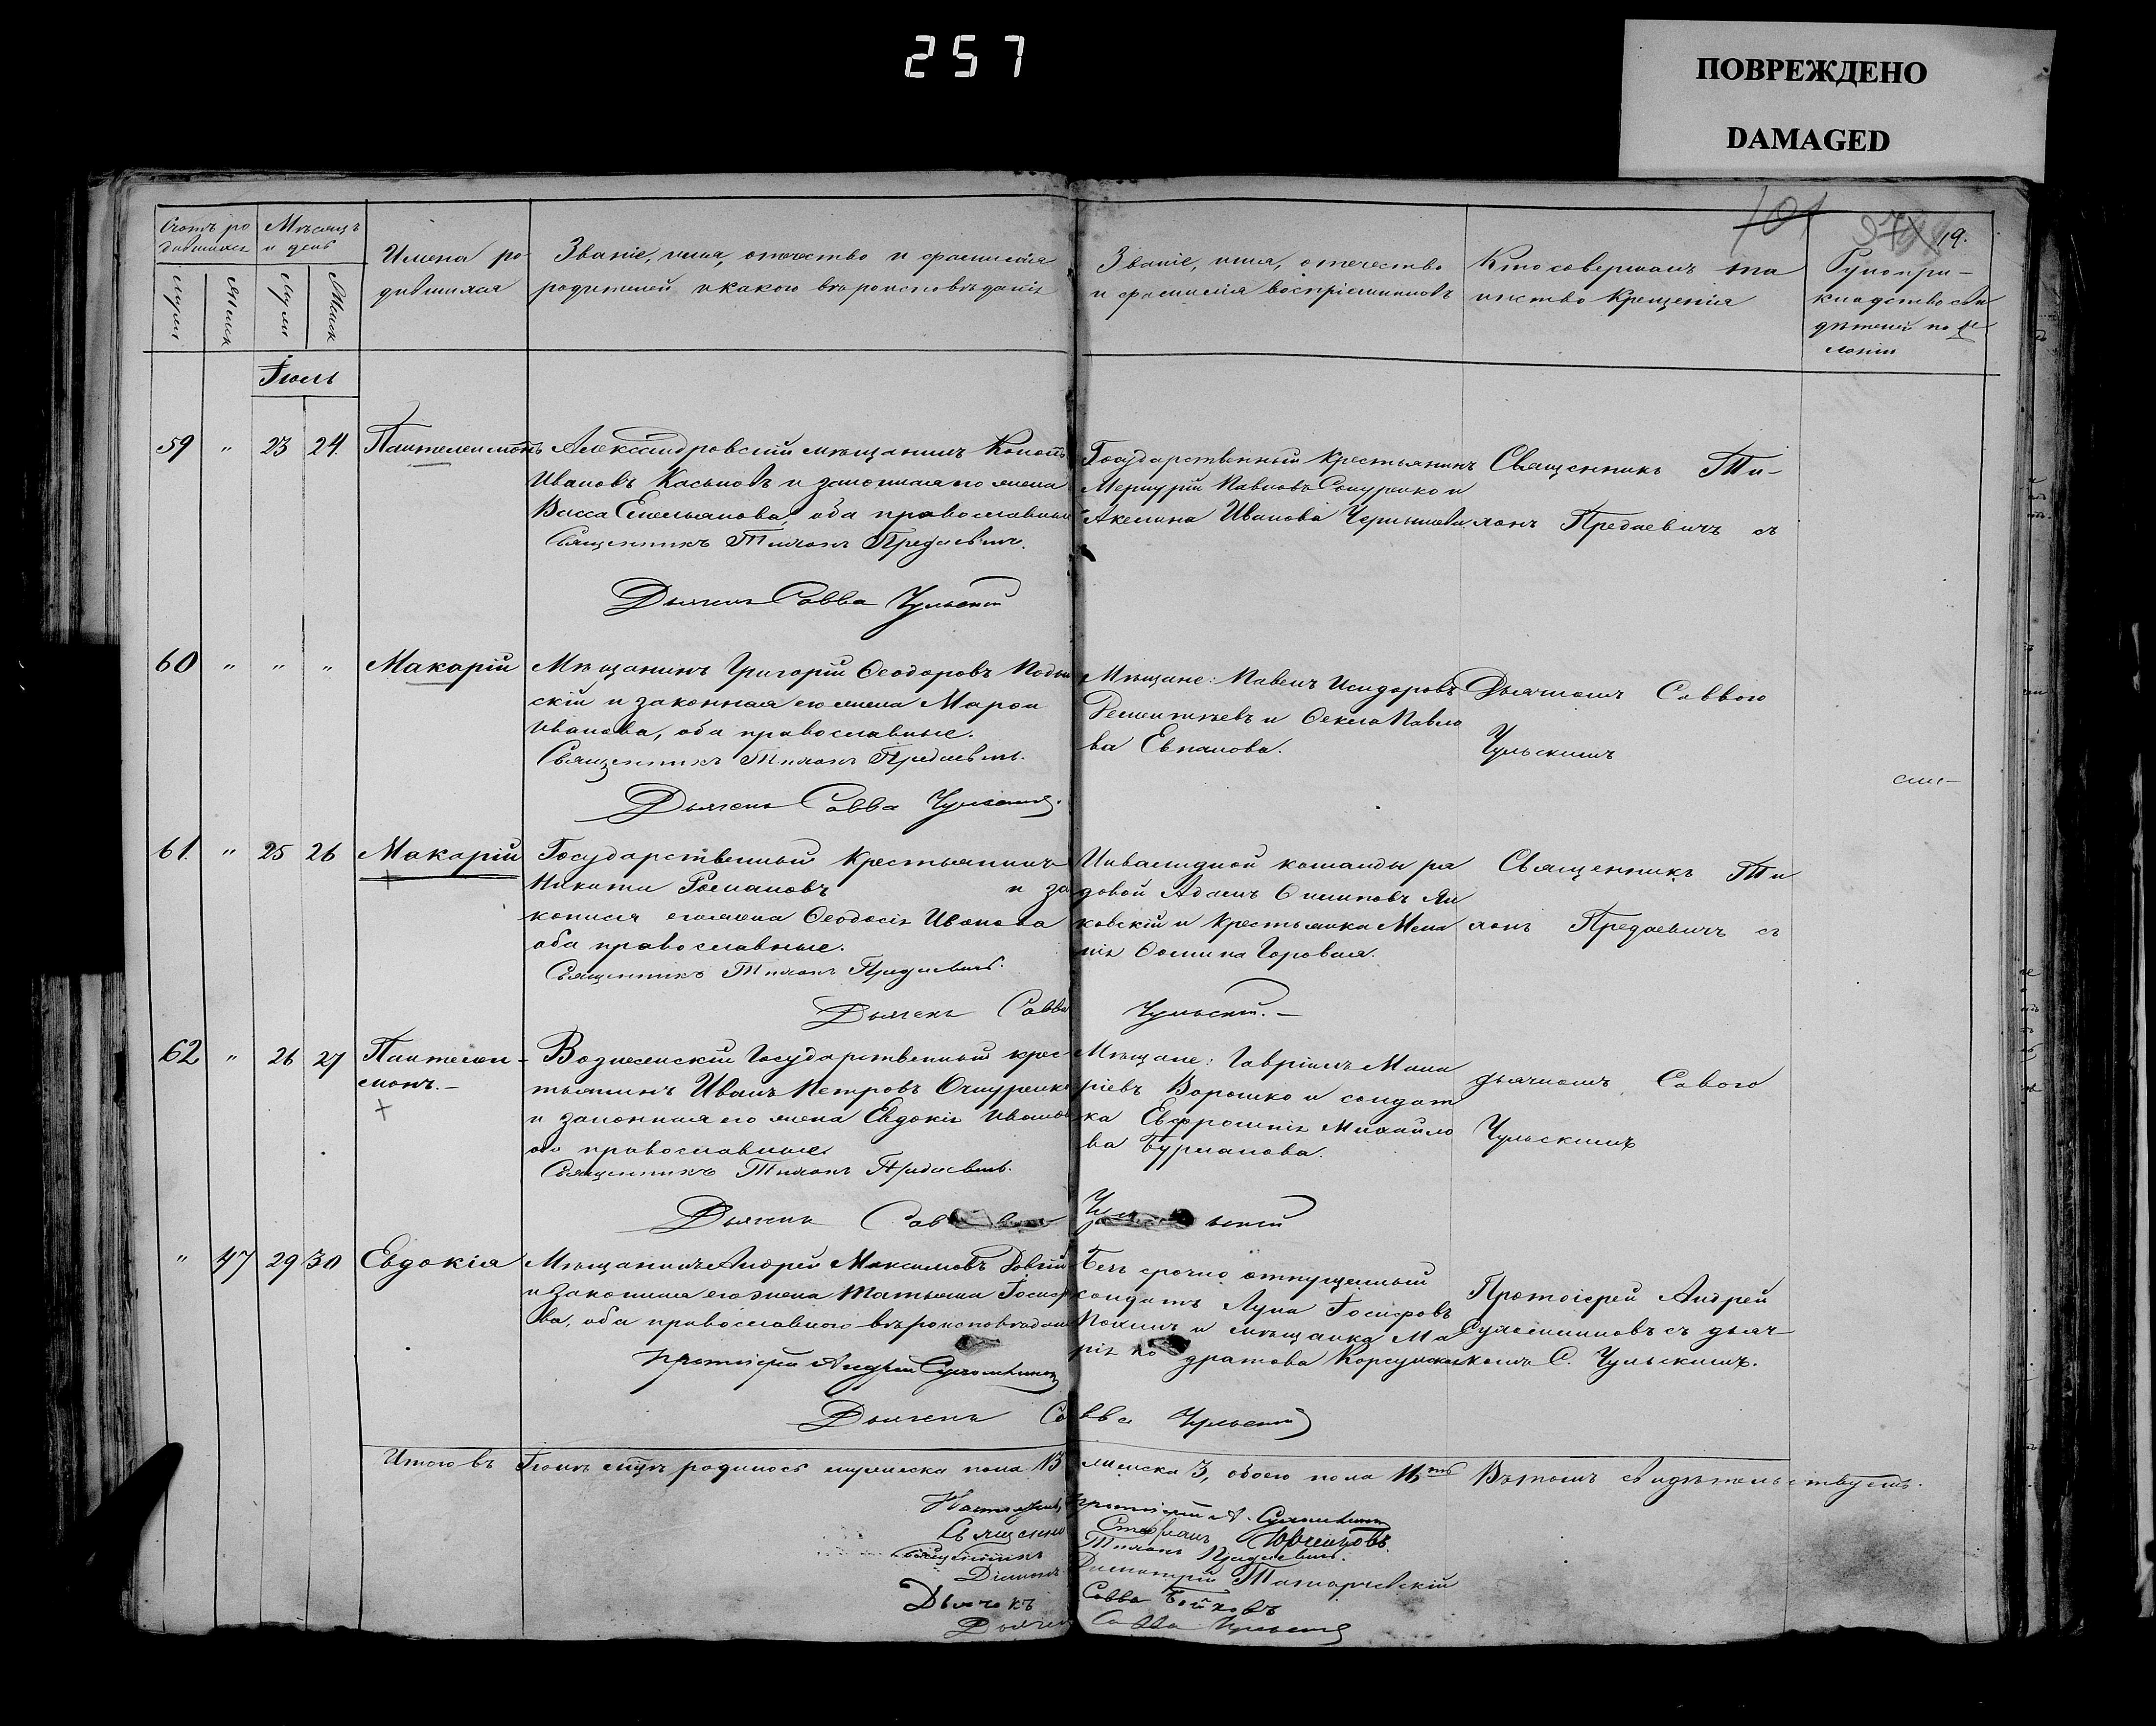 257
ПОВРЕЖДЕНО
DAMAGED
101
19.
Счетъ ро
дившихся
Мѣсяцъ
и день
Имена ро-
дившихся
Званіе, имя, отчество и фамилія
родителей и какого вѣроисповѣданія
Званіе, имя, отчество
и фамилія воспріемниковъ
Кто совершалъ та
инство Крещенія
Рукопри-
кладство сви
дѣтелей по же
ланію
Іюль
59 " 23 24 Пантелеимонъ
Александровскій мѣщанинъ
Ивановъ Касьновъ и законная его жена
Васса Емельянова, оба православные
Священникъ Тихонъ Предаевичъ.
Дьячекъ Савва Чульскій
Государственный Крестьянинъ
Меркурій Павловъ и
Акелина Иванова
Священникъ Ти-
хонъ Предаевичъ съ
60 " " " Макарій
Мѣщанинъ Григорій Ѳеодоровъ
скій и законная его жена Марѳа
Иванова, оба православные.
Священникъ Тихонъ Предаевичъ.
Дьячекъ Савва Чульскій.
Мѣщане: Павелъ Исидоровъ
Дементьевъ и Ѳекла Павло
ва Евпалова.
Дьячкомъ Саввою
Чульскимъ
61. " 25 26 Макарій
Государственный Крестьянинъ
Никита Романовъ и за
конная его жена Ѳеодосія Иванова
оба православные.
Священникъ Тихонъ Предаевичъ.
Дьячекъ Савва Чульскій.
Инвалидной команды ря
довой Адамъ Осиповъ Ян
ковскій и Крестьянка Мела
нія Ѳомина Горовая.
Священникъ Ти
хонъ Предаевичъ съ
62 " 26 27 Пантелеи-
монъ.
Вознесенскій Государственный крес
тьянинъ Иванъ Петровъ
и законная его жена Евдокія Иванова
оба православные
Священникъ Тихонъ Предаевичъ.
Дьячекъ Савва Чульскій
Мѣщане: Гавріилъ Мака
ріевъ Ворошко и солдат
ка Евфросинія Михайло
ва Бурманова.
дьячкомъ Савою
Чульскимъ
" 47 29 30 Евдокія
Мѣщанинъ Андрей Максимовъ
и законная его жена Татьяна Іосифо
ва, оба православнаго вѣроисповѣданія
протоіерей Андрей Сухомлиновъ
Дьячекъ Савва Чульскій
Безсрочно отпущенный
солдатъ Лука Іосифовъ
и мѣщанка Ма
рія дратова Корсунская
Протоіерей Андрей
Сухомлиновъ съ дьяч-
комъ С. Чульскимъ.
Итого въ Іюлѣ мцѣ родилось мужеска пола 13 женска 3, обоего пола 16ть Въ томъ свидѣтельствуемъ.
протоіерей А. Сухомлиновъ
Священникъ Стефанъ
Священникъ Тихонъ Предаевичъ.
Діаконъ Димитрій
Дьячокъ Савва Бойковъ
Дьячекъ Савва Чульскій